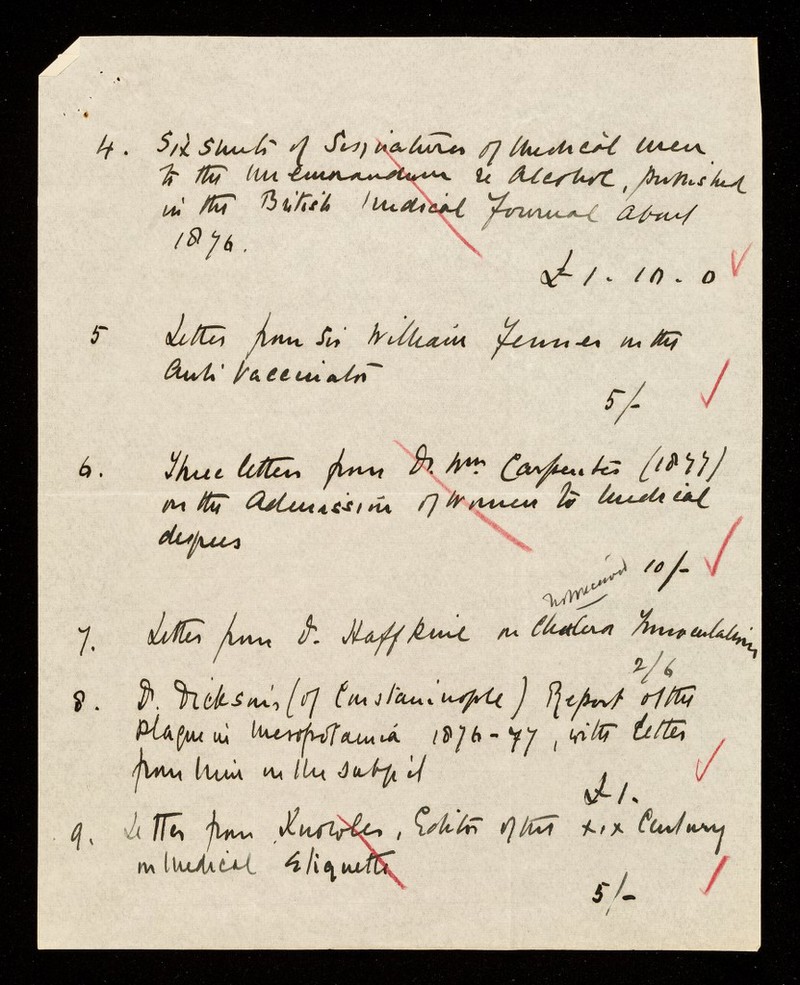 4. Six sheets of Signatures of Medical men
to the Memorandum re Alcohol, published
in the British Medical Journal about
1876.
£1-10-0
5 Letter from Sir William Jenner on the
Anti Vaccinator
5/-
6. Three letters from Dr. Wm Carpenter (1877)
on the Admission of Women to Medical
degrees
10/-
not received
7. Letter from D. Haffkine on Cholera Innoculations
2/6
8. Dr. Dickson's (of Constaninople) Report of the
Plague in Mesopotamia 1876-77, with letter
from him on the subject
£1.
9. Letter from Knowles, Editor of the XIX Century
on Medical Etiquette
5/-